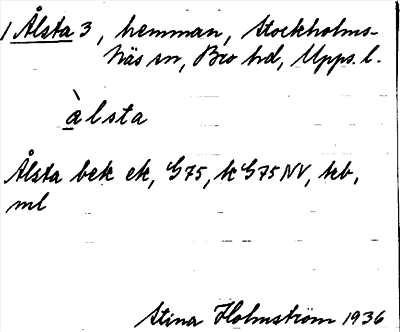 1 Ålsta 3, hemman, Stockholms-
Näs sn, Bro hd, Upps. l.
àlsta
Ålsta bek ek, G75, k G75 NV, kb,
ml
Stina Holmström 1936